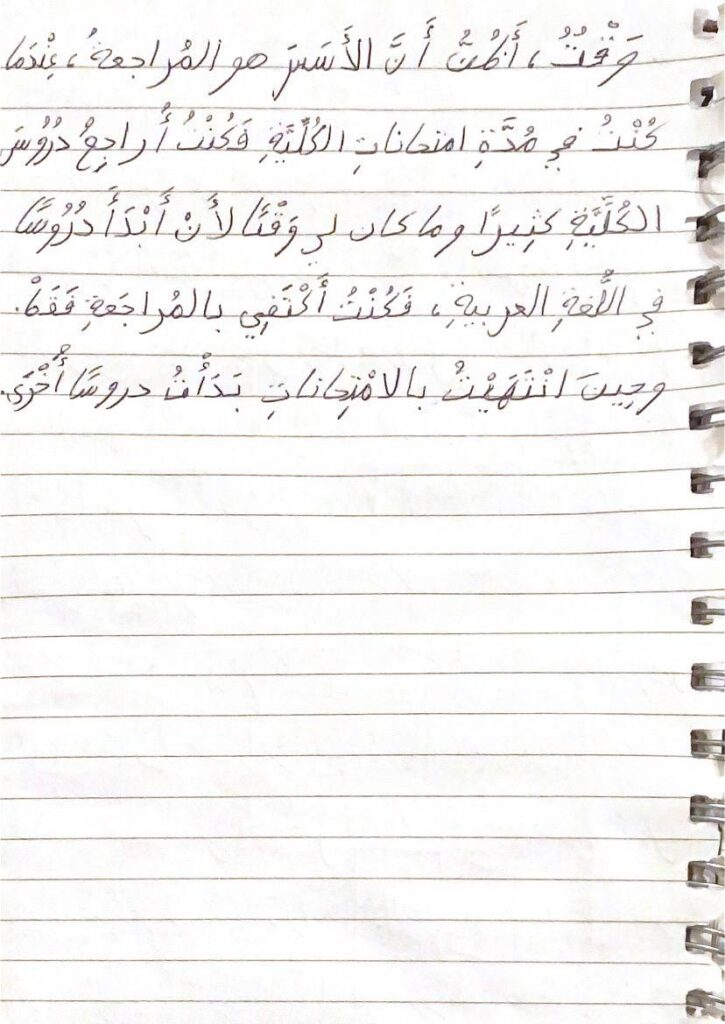 وَقْتٌ، أَظُنُّ أَنَّ الأَسَسَ هو المُراجعةُ، عِنْدَما
كُنْتُ في مُدَّةِ امتحاناتِ الكُلِّيَّةِ فَكُنْتُ أُراجِعُ دُرُوسَ
الكُلِّيَّةِ كَثِيرًا وما كان لي وَقْتًا لأَنْ أَبْدَأَ دُرُوسًا
في اللُّغةِ العربيةِ، فَكُنْتُ أَكْتَفِي بالمُراجَعةِ فَقَطْ.
وحِينَ انْتَهَيْتُ بالامْتِحاناتِ بَدَأْتُ دروسًا أُخْرَى.